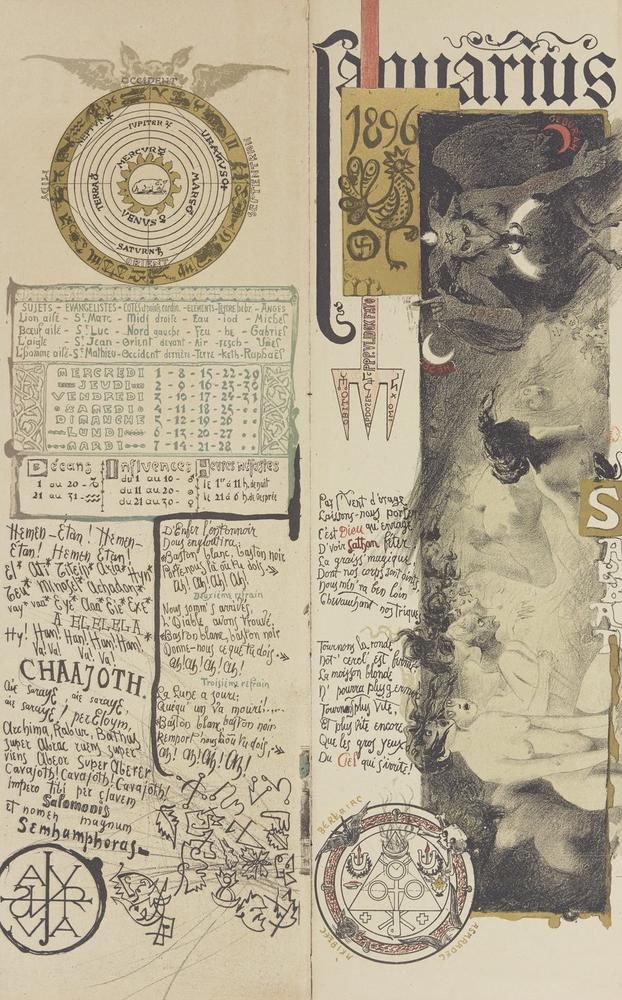 OCCIDENT
JUPITER ♃
NEPTVN
URANUS
MERCVR☿
TERRA
MARS♂
VENUS ♀
SATURN♄
ORIENT
SUJETS - EVANGELISTES - COTÉS
ELEMENTS - Lettre hébr. - ANGES
Lion ailé - St Marc - Midi droite - Eau - iod - Michel
Bœuf ailé - St Luc - Nord gauche - Feu - he - Gabriel
L'aigle - St Jean - Orient devant - Air - resch -
L'homme ailé - St Mathieu - Occident derrière - Terre - Keth - Raphaël
MERCREDI 1 - 8 - 15 - 22 - 29
JEUDI 2 - 9 - 16 - 23 - 30
VENDREDI 3 - 10 - 17 - 24 - 31
SAMEDI 4 - 11 - 18 - 25
DIMANCHE 5 - 12 - 19 - 26
LUNDI 6 - 13 - 20 - 27
MARDI 7 - 14 - 21 - 28
Décans Influences Heures néfastes
1 au 20 - ♑
21 au 31 - ♒
du 1 au 10 -
du 11 au 20 -
du 21 au 30 -
le 1er à 11 h. du nuit
le 21 à 6 h.
Hemen-Etan! Hemen-
Etan! Hemen Etan!
El* Ati* Titeip* Azia* Hyn*
Teu* Minosel* Achadon*
vay* vaa* Eye* Aaa* Eie* Exe*
A EL EL EL A*
Hy! Hau! Hau! Hau! Hau!
Va! Va! Va! Va!
CHAAJOTH.
Aie Saraye, aie saraye,
aie saraye! per Eloym,
Archima, Rabur, Bathas
super Abrac ruens super-
viens Abeor Super Aberer
Cavajoth! Cavajoth! Cavajoth!
impero tibi per clavem
Salomonis
et nomen magnum
Semhamphoras
D'Enfer l'entonnoir
Nous engloutira;
Baston blanc, baston noir
Ah! Ah! Ah! Ah!
Deuxième refrain
Nous somm's arrivés,
L'Diable avons trouvé,
Baston blanc, baston noir
Donne-nous ce que tu dois
Ah! Ah! Ah! Ah!
Troisième refrain
La Lune a souri;
Quéqu' un va mouri!...
Baston blanc, baston noir
Ah! Ah! Ah! Ah!
Januarius
1896
GEBURAH
OBITO
Laissons-nous porter
C'est Dieu qu'enrage
D'voir Sathan fêter
La graiss' magique,
Dont nos corps sont oints,
Nous mèn'ra ben loin
Chevauchant nos triques.
Tournons la ronde
Not' cercl' est fermé
La maison blonde
N' pourra plus germer
Tournons plus vite,
Et plus vite encore
Que les gros yeux
Du Ciel qui s'irrite!
S
BERKAIAC
ASARADEL